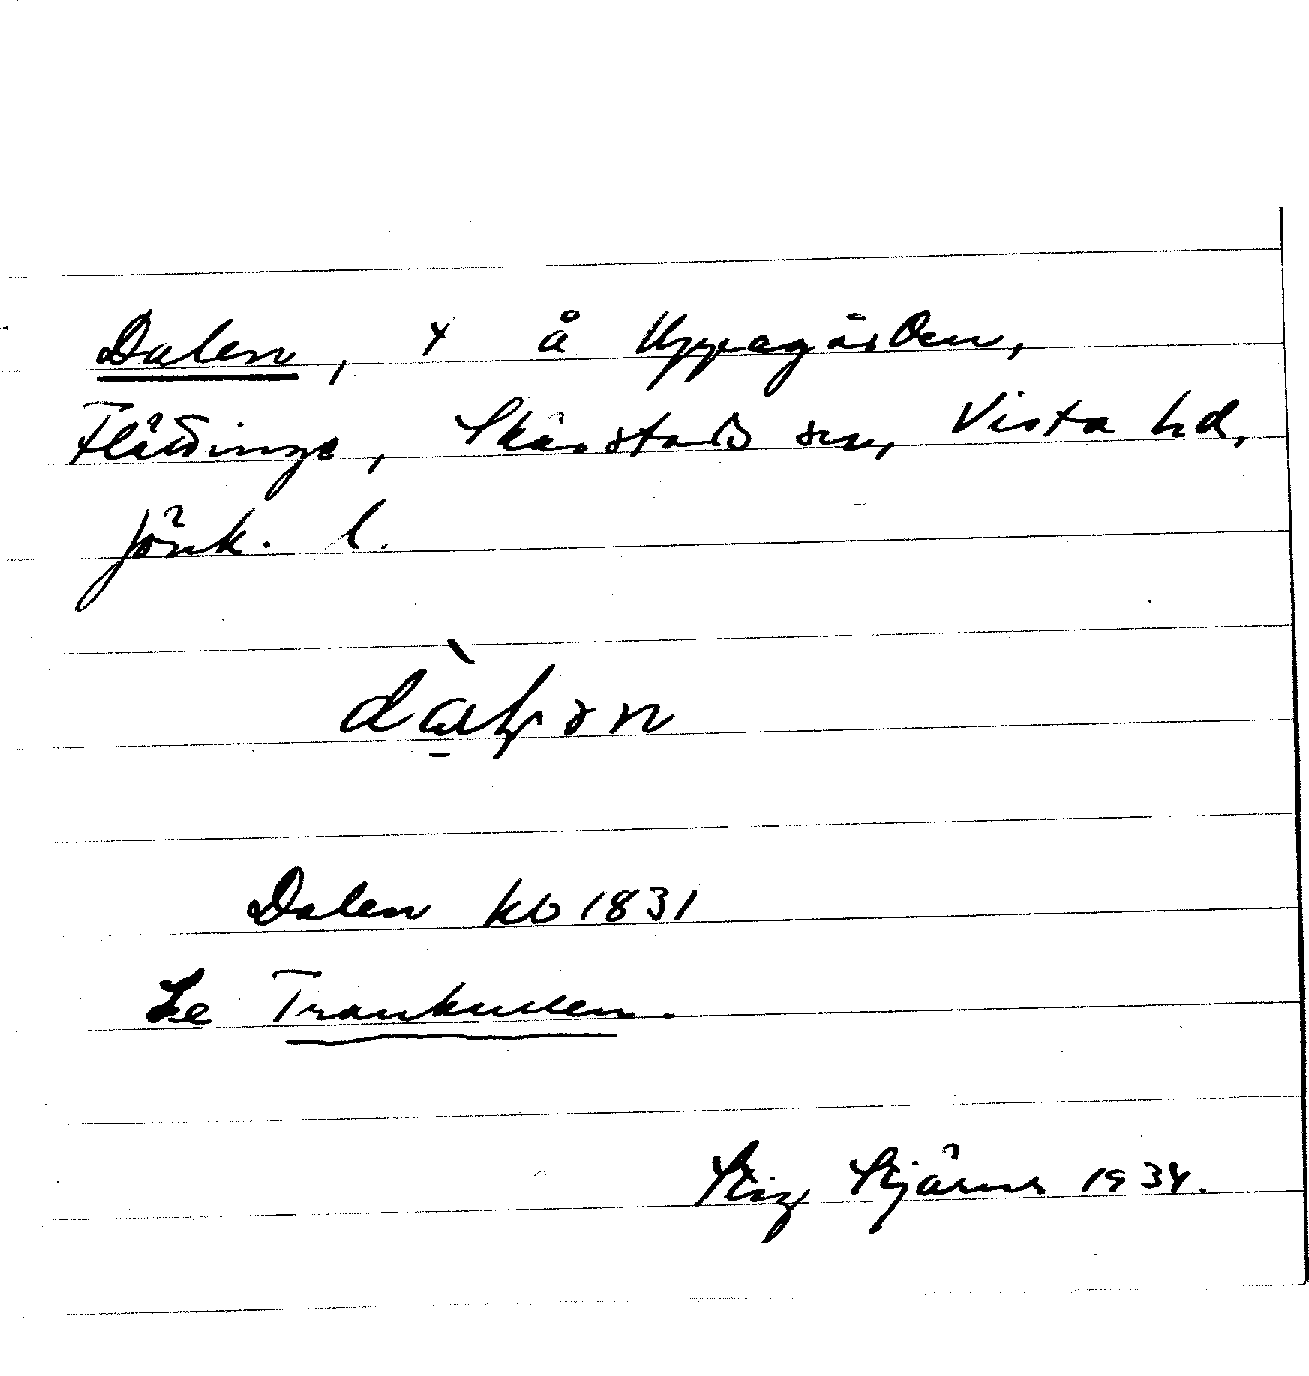 Dalen, x å Uppegården,
Flättinge, Skärstads sn, Vista hd,
Jönk. l.
Dalen kb 1831
Se Trankullen.
Stig Stjärne 1934.